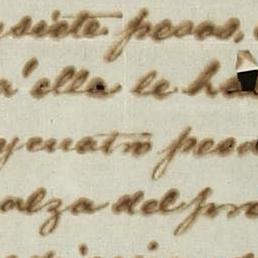 siete pesos,
a'ella le ha
y cuatro peso
alza del pro